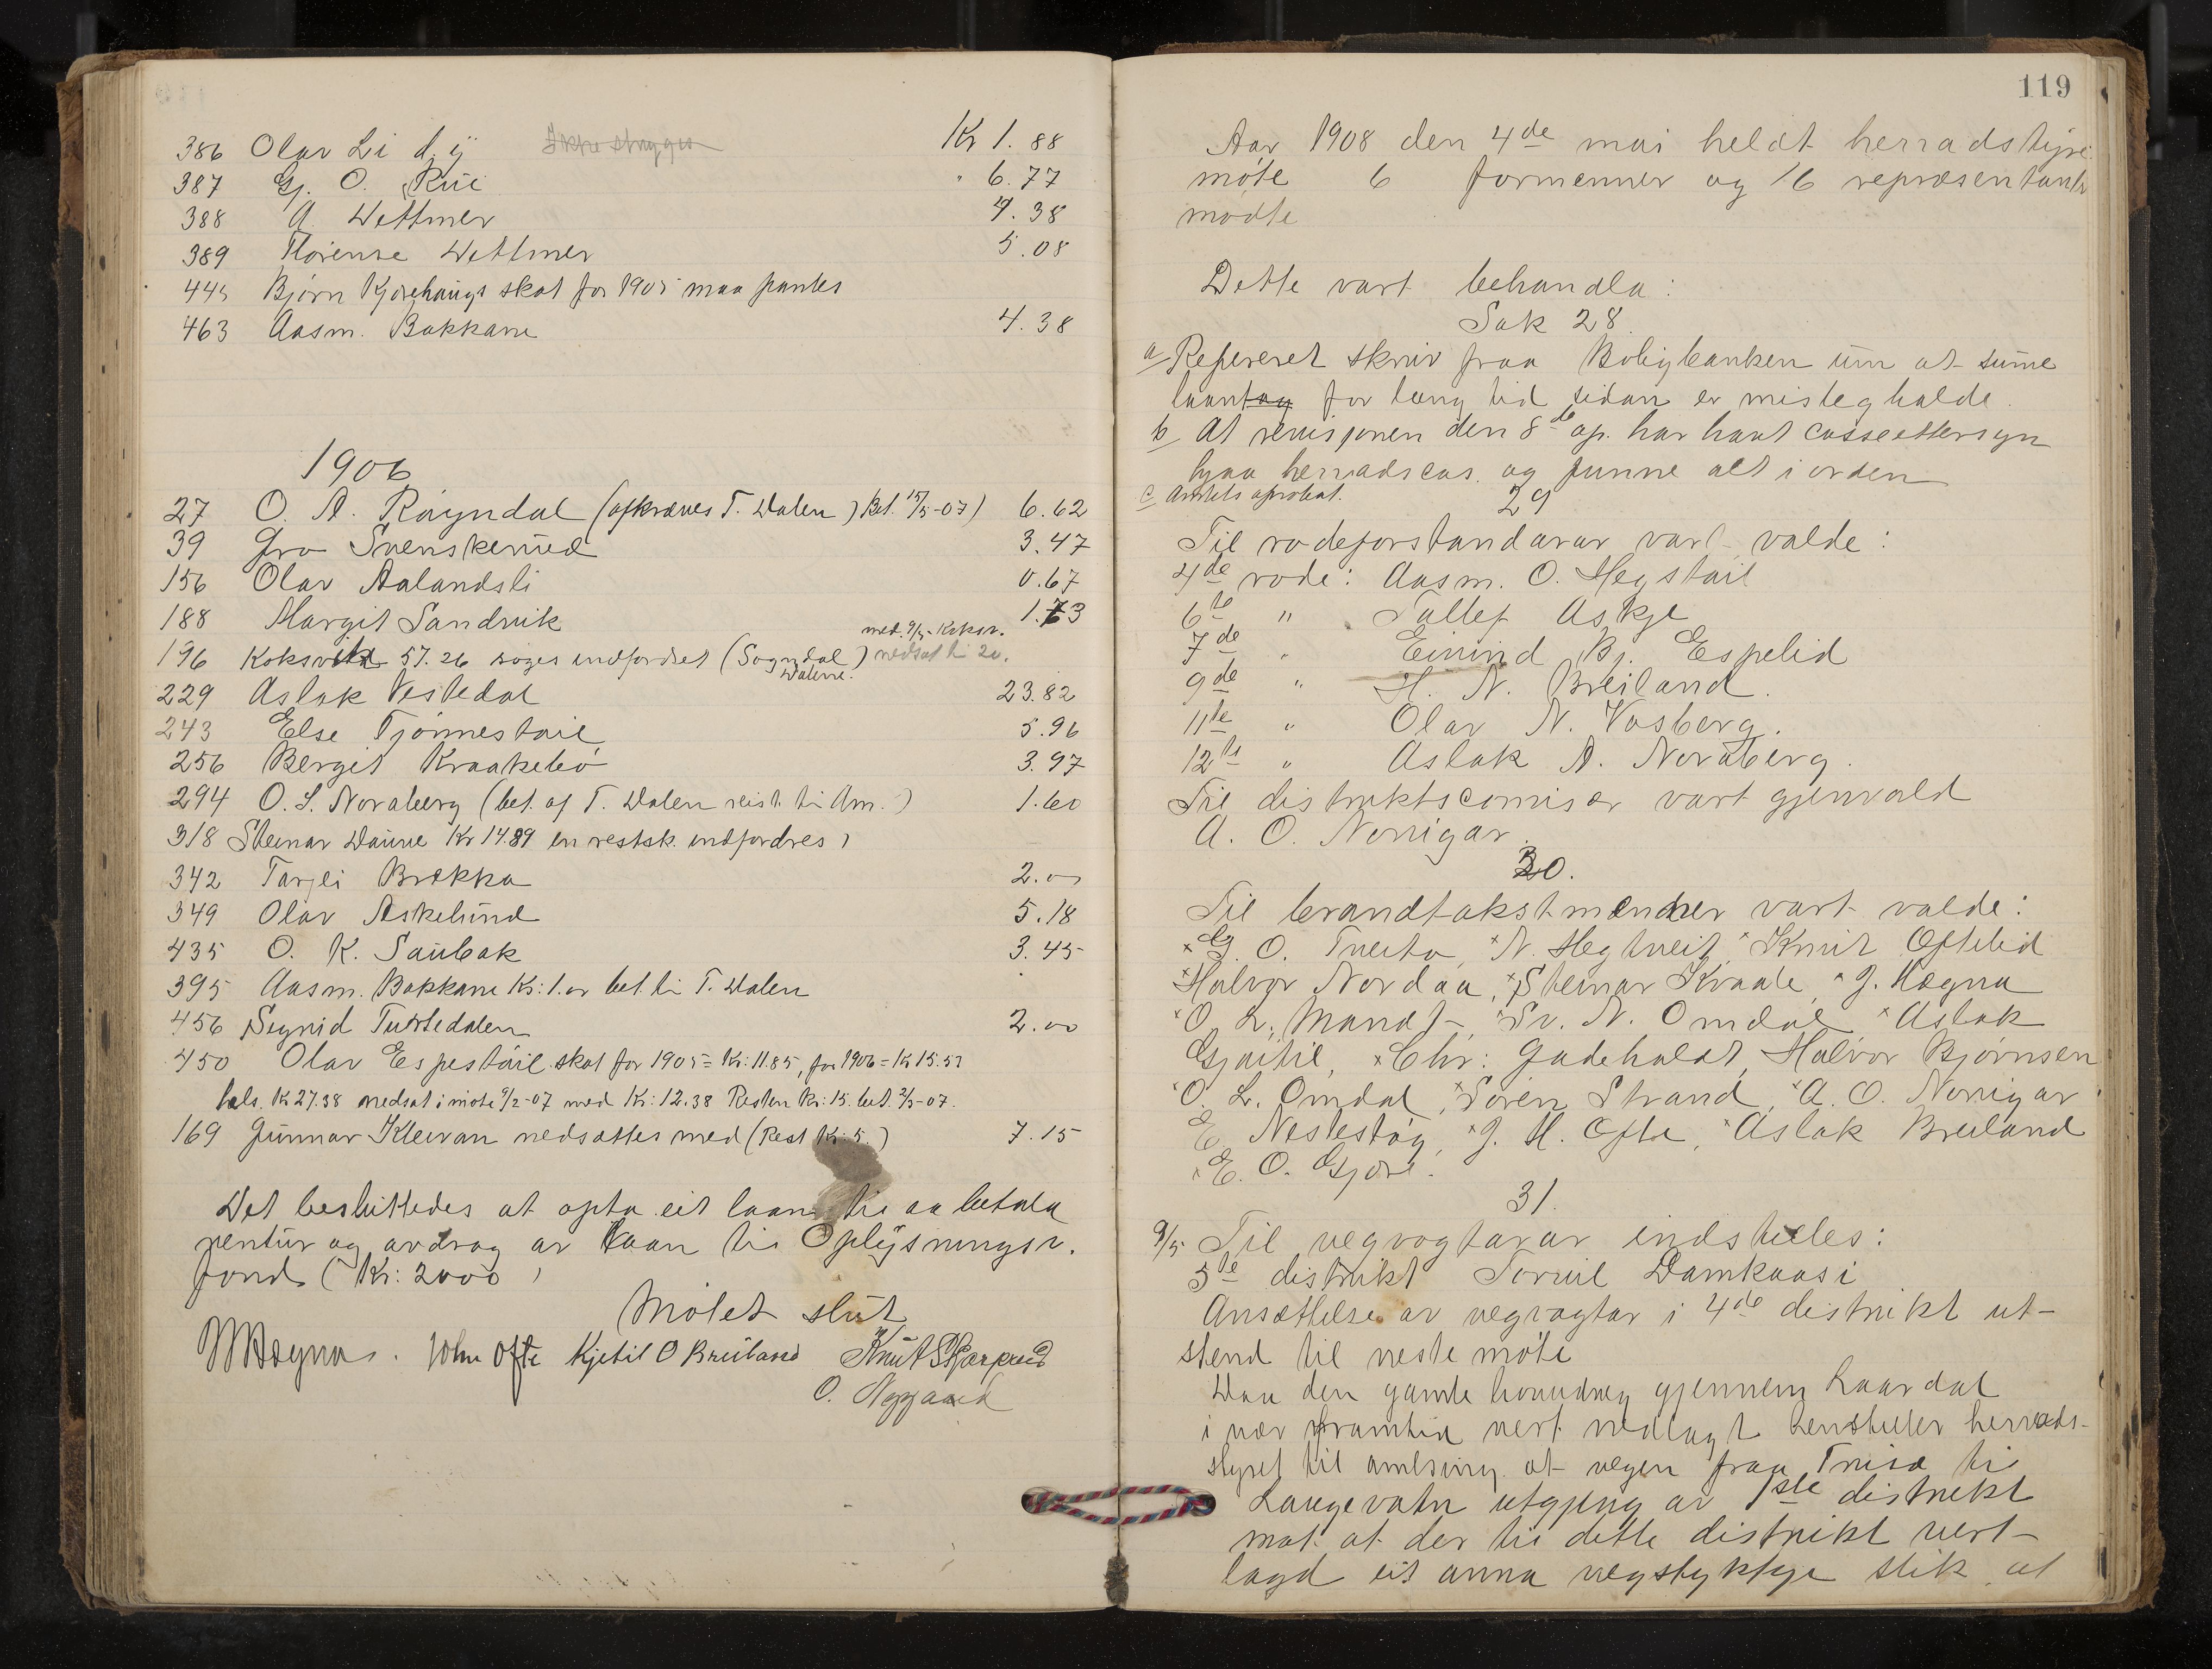 386 Olav Li d. y. Kr 1.88
387 Gj. O. Rui " 6.77
388 A. Wettmer 4.38
389 Torine Wettmer 5.08
445 Bjørn skat for 1905 maa pantes
463 Aasm. Bakkane 4.38
1906
27 O. A. Röyndal (afkræves T. Dalen) Bet. 15/5-07) 6.62
39 Gro Svenskerud 3.47
156 Olav Aalandsli 0.67
188 Margit Sandvik 1.73
196 57.26 søges indfordret (Sogndal) nedsat til 20.
Dalene.
229 Aslak Vestedal 23.82
243 Else Tjönnestaul 5.96
256 Bergit Kraakebö 3.97
294 O. S. Noraberg (bet. af T. Dalen reist til Am.) 1.60
318 Steinar Kr 14.89 en restsk. indfordres)
342 Tarjei Brekka 2.00
349 Olav Askelund 5.18
435 O. K. Saubak 3.45
395 Aasm. Bakkane Kr: 1.00 bet. til T. Dalen
456 Signid Tveitedalen 2.00
450 Olav Espestöil skat for 1905 = Kr: 11.85, for 1906 = Kr 15.53
tils. Kr 27.38 nedsat i möte 9/2-07 med Kr: 12.38 Resten Kr: 15. bet. 2/5-07.
169 Gunnar Kleivan nedsattes med (Rest Kr: 5.) 7.15
Det besluttedes at opta eit laan til aa betala
rentur og avdrag av laan til Oplysningsv.
fond (Kr: 2000)
Mötet slut
John Ofte Kjetil O Breiland Knut Skarprud
O. Nygaard
119
Aar 1908 den 4de mai heldt herradstyre
möte 6 formenner og 16 repræsentantr
mödte
Dette vart behandla:
Sak 28.
a Refereret skriv fraa Boligbanken um at sume
laantag for læng tid sidan er misleghalde.
b At revisjonen den 8de ap. har havt casseettersyn
hjaa herradscas. og funne alt i orden
c Amtets aprobat.
29
Til rodeforstandarar vart valde:
4de rode: Aasm. O. Hegstöil
6te " Tallef Askje
7de " Eivind Bj. Espelid
9de " H. N. Breiland.
11te " Olav N. Vasberg.
12te " Aslak A. Noraberg.
Til distriktscomisær vart gjenvald
A. O. Norrigar.
30.
Til brandtakstmenner vart valde:
G. O. Tveito, N. Hegtveit, Knut Oftelid
Halvor Nordaa, Steinar Kraale, J. Mægna
O. L. Mandt, Sv. N. Omdal, Aslak
Gjuitil, Chr: Gadeholdt, Halvor Bjørnsen
O. L. Omdal, Sören Strand, A. O. Norrigar
E. Nestestög, J. H. Ofte, Aslak Breiland
E. O. Gjöre.
31.
9/5 Til vegvogtarar indstilles:
5te distrikt Torivil Damkaasi
Ansættelse av vegvogtar i 4de distrikt ut-
stend til neste möte
Daa den gamle hovudveg gjennem Laardal
i nær framtid vert nedlagt henstiller herrads-
styret til amtsing. at vegen fraa Trisæ til
Laugevatn utgjeng av 1ste distrikt
mot at der til dette distrikt vert
lagd eit anna vegstykkje slik at